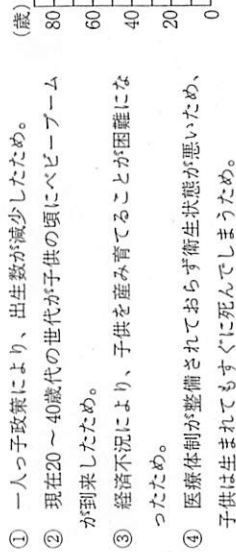 ① 一人っ子政策により、出生数が減少したため。
② 現在20～40歳代の世代が子供の頃にベビーブーム
が到来したため。
③ 経済不況により、子供を産み育てることが困難にな
ったため。
④ 医療体制が整備されておらず衛生状態が悪いため、
子供は生まれてもすぐに死んでしまうため。
(歳)
80
60
40
20
0